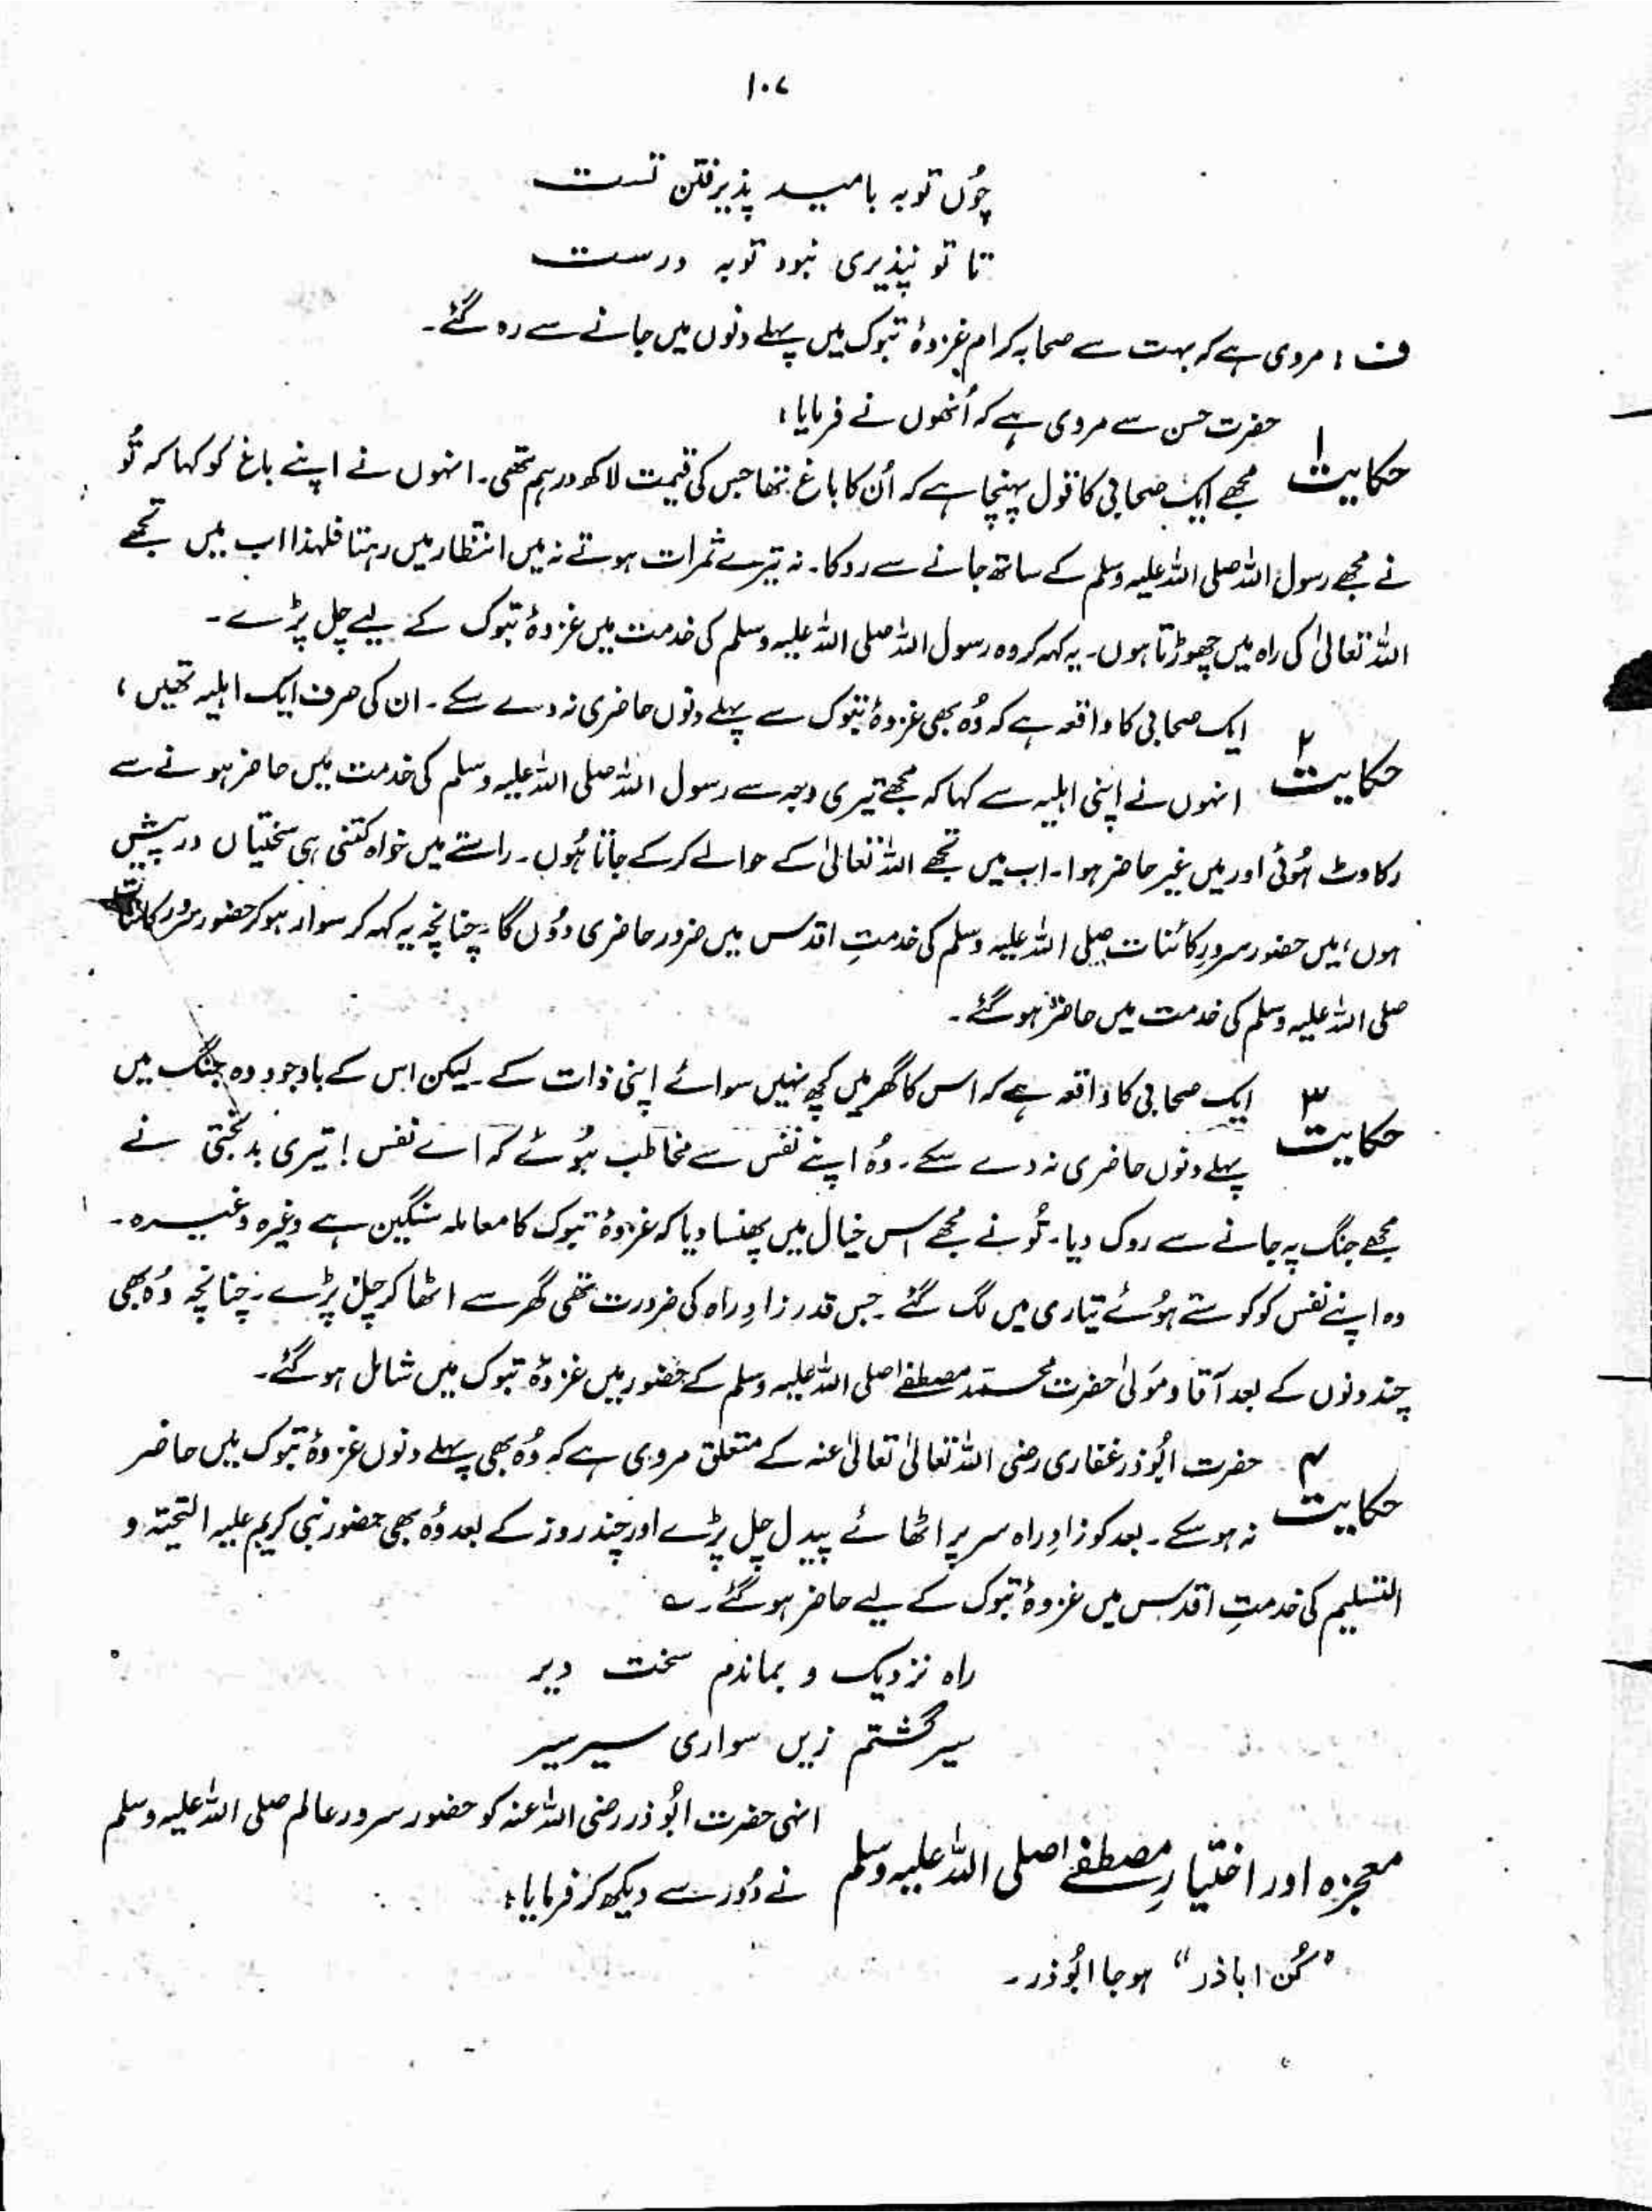 ۱۰۷
چُوں توبہ بامید پذیرفتن تست
تا تو نپذیری نبود توبہ درست
ف : مروی ہے کہ بہت سے صحابہ کرام غزوۂ تبوک میں پہلے دنوں میں جانے سے رہ گئے۔
حضرت حسن سے مروی ہے کہ اُنھوں نے فرمایا :
حکایت ۱ مجھے ایک صحابی کا قول پہنچا ہے کہ اُن کا باغ تھا جس کی قیمت لاکھ درہم تھی۔ انہوں نے اپنے باغ کو کہا کہ تُو
نے مجھے رسول اللہ صلی اللہ علیہ وسلم کے ساتھ جانے سے روکا۔ نہ تیرے ثمرات ہوتے نہ میں انتظار میں رہتا فلہذا اب میں تجھے
اللہ تعالیٰ کی راہ میں چھوڑتا ہوں۔ یہ کہہ کر وہ رسول اللہ صلی اللہ علیہ وسلم کی خدمت میں غزوۂ تبوک کے لیے چل پڑے۔
ایک صحابی کا واقعہ ہے کہ وُہ بھی غزوۂ تبوک سے پہلے دنوں حاضری نہ دے سکے۔ ان کی صرف ایک اہلیہ تھیں ،
حکایت ۲ انہوں نے اپنی اہلیہ سے کہا کہ مجھے تیری وجہ سے رسول اللہ صلی اللہ علیہ وسلم کی خدمت میں حاضر ہونے سے
رکاوٹ ہُوئی اور میں غیر حاضر ہوا۔ اب میں تجھے اللہ تعالیٰ کے حوالے کرکے جاتا ہُوں۔ راستے میں خواہ کتنی ہی سختیاں درپیش
ہوں، میں حضور سرورِ کائنات صلی اللہ علیہ وسلم کی خدمتِ اقدس میں ضرور حاضری دُوں گا۔ چنانچہ یہ کہہ کر سوار ہو کر حضور سرور کائنات
صلی اللہ علیہ وسلم کی خدمت میں حاضر ہوگئے۔
ایک صحابی کا واقعہ ہے کہ اس کا گھر میں کچھ نہیں سوائے اپنی ذات کے۔ لیکن اس کے باوجود وہ جنگ میں
حکایت ۳ پہلے دنوں حاضری نہ دے سکے۔ وُہ اپنے نفس سے مخاطب ہُوئے کہ اے نفس ! تیری بدبختی نے
مجھے جنگ پہ جانے سے روک دیا۔ تُو نے مجھے اس خیال میں پھنسا دیا کہ غزوۂ تبوک کا معاملہ سنگین ہے وغیرہ وغیرہ۔
وہ اپنے نفس کو کوستے ہُوئے تیاری میں لگ گئے جس قدر زادِ راہ کی ضرورت تھی گھر سے اٹھا کر چل پڑے۔ چنانچہ وُہ بھی
چند دنوں کے بعد آقا و مَولیٰ حضرت محمد مصطفےٰ صلی اللہ علیہ وسلم کے حضور میں غزوۂ تبوک میں شامل ہوگئے۔
حضرت ابُوذر غفاری رضی اللہ تعالیٰ تعالیٰ عنہ کے متعلق مروی ہے کہ وُہ بھی پہلے دنوں غزوۂ تبوک میں حاضر
حکایت ۴ نہ ہوسکے۔ بعد کو زادِ راہ سر پر اٹھائے پیدل چل پڑے اور چند روز کے بعد وُہ بھی حضور نبی کریم علیہ التحیتہ و
التسلیم کی خدمتِ اقدس میں غزوۂ تبوک کے لیے حاضر ہوگئے۔ ؎
راہ نزدیک و بماندم سخت دیر
سیر گشتم زیں سواری سیر سیر
انہی حضرت ابُوذر رضی اللہ عنہ کو حضور سرور عالم صلی اللہ علیہ وسلم
معجزہ اور اختیارِ مصطفےٰ صلی اللہ علیہ وسلم نے دُور سے دیکھ کر فرمایا :
"کُن اباذر" ہوجا ابُوذر۔